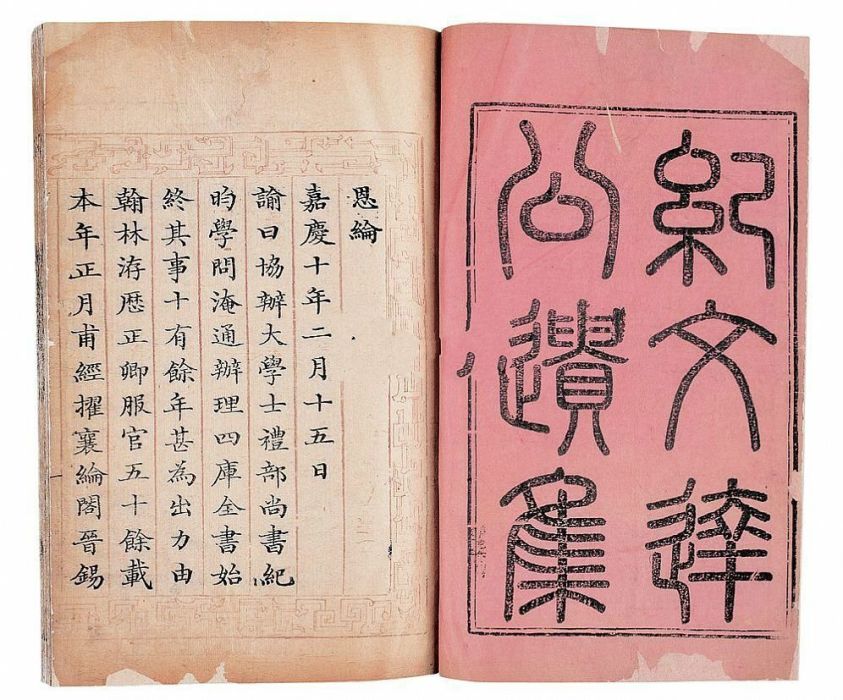 紀文達
公遺集
恩綸
嘉慶十年二月十五日
諭曰協辦大學士禮部尚書紀
昀學問淹通辦理四庫全書始
終其事十有餘年甚為出力由
翰林洊歷正卿服官五十餘載
本年正月甫經擢襄綸閣晉錫